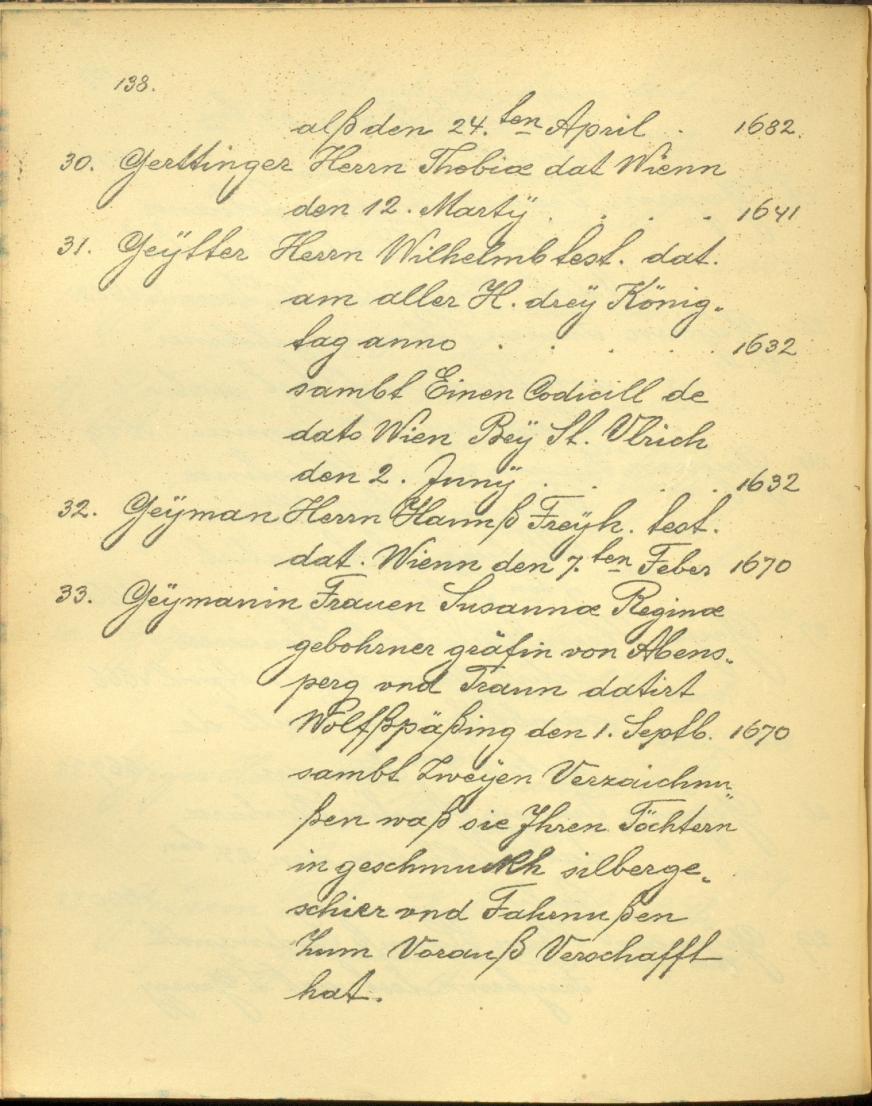 138.
alß den 24.ten April . 1682.
30. Gerttinger Herrn Thobiæ dat Wienn
den 12. Martÿ . . . . 1641
31. Geÿtter Herrn Wilhelmb test. dat.
am aller H. dreÿ König„
tag anno . . . . . 1632
sambt Einen Codicill de
dato Wien Beÿ St. Vlrich
den 2. Junÿ . . . . 1632
32. Geÿman Herrn Hannß Freÿh. test.
dat. Wienn den 7.ten Feber 1670
33. Geÿmanin Frauen Susannæ Reginæ
gebohrner gräfin von Abens„
perg vnd Traun datirt
Wolfßpäßing den 1. Septb. 1670
sambt Zweÿen Verzaichnu„
ßen waß sie Ihren Töchtern
in geschmuckh silberge„
schier vnd Fahrnußen
Zum Vorauß Verschafft
hat.